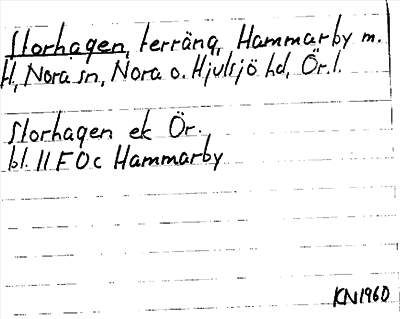 Storhagen, terräng, Hammarby m.
fl, Nora sn, Nora o. Hjulsjö hd, Ör. l.
Storhagen ek Ör.
bl. 11F 0c Hammarby
KN1960